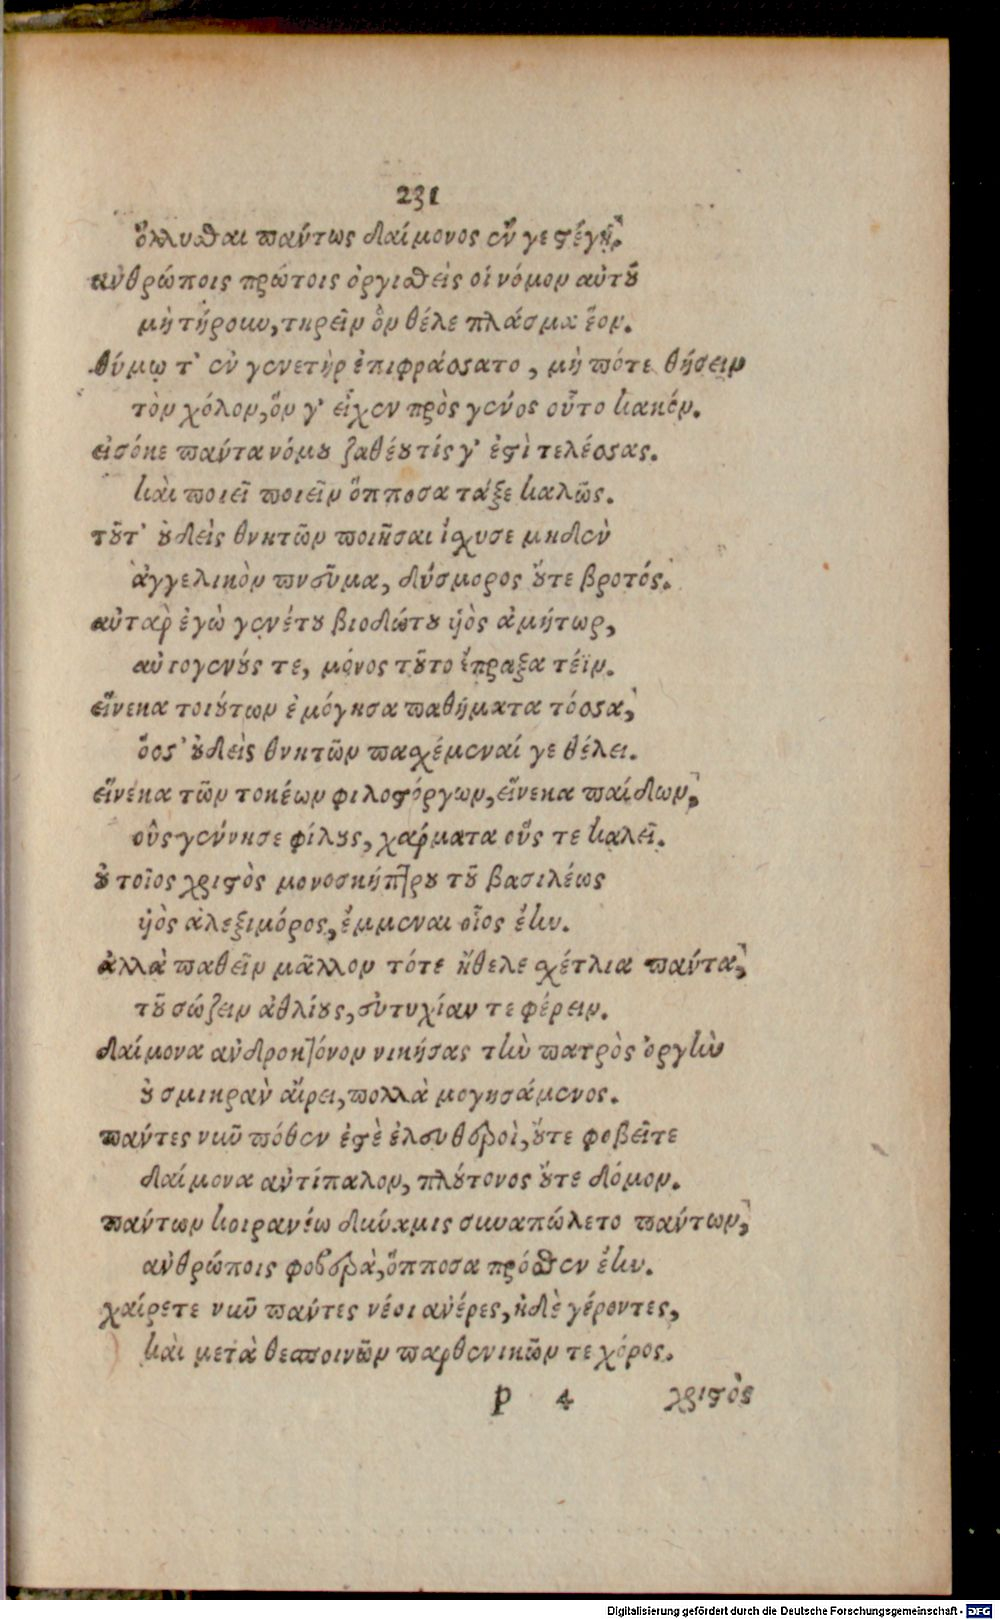 231
ὄλλυσθαι παντως δαίμονος ἔν γε στέγῃ.
ἀνθρώποις πρώτοις ὀργισθεὶς οἱ νόμον αὐτοῦ
μὴ τήρουν, τηρεῖν ὃν θέλε πλάσμα ἕον.
θύμῳ τ' ἐν γενετὴρ ἐπιφράσσατο, μὴ πότε θήσειν
τὸν χόλον, ὅν γ' εἶχεν πρὸς γένος οὗτο κακόν.
εἰσόκε παντα νόμου ζαθέου τίς γ' ἐστὶ τελέσσας.
καὶ ποιεῖ ποιεῖν ὅπποσα τάξε καλῶς.
τοῦτ' οὐδεὶς θνητῶν ποιῆσαι ἴσχυσε μηδὲν
ἀγγελικὸν πνεῦμα, δύσμορος οὔτε βροτός.
αὐταρ ἐγὼ γενέτου βιοδώτου ὑὸς ἀμήτωρ,
αὐτογενούς τε, μόνος τοῦτο ἔπραξα τέϊν.
εἵνεκα τοιούτων ἐμόγησα παθήματα τόσσα,
ὅσς' οὐδεὶς θνητῶν πασχέμεναί γε θέλει.
εἵνεκα τῶν τοκέων φιλοστόργων, εἵνεκα παίδων,
οὓς γέννησε φίλους, χαρματα οὕς τε καλεῖ.
οὐ τοῖος χριστὸς μονοσκήπτρου τοῦ βασιλέως
ὑὸς ἀλεξιμόρος, ἔμμεναι οἷος ἔην.
ἀλλὰ παθεῖν μᾶλλον τότε ἤθελε σχέτλια παντα,
τοῦ σώζειν ἀθλίους, εὐτυχίαν τε φέρειν.
δαίμονα ἀνδροκτόνον νικήσας τὴν πατρὸς ὀργὴν
οὐ σμικρὰν αἴρει, πολλὰ μογησάμενος.
παντες νῦν πόθεν ἐστὲ ἐλευθεροὶ, οὔτε φοβεῖτε
δαίμονα ἀντίπαλον, πλούτονος οὔτε δόμον.
παντων κοιρανέω δύναμις συναπώλετο παντων,
ἀνθρώποις φοβερὰ, ὅπποσα πρόσθεν ἔην.
χαίρετε νῦν παντες νέοι ἀνέρες, ἠδὲ γέροντες,
καὶ μετὰ θεσποινῶν παρθενικῶν τε χόρος.
p 4 χριστὸς
Digitalisierung gefördert durch die Deutsche Forschungsgemeinschaft - DFG